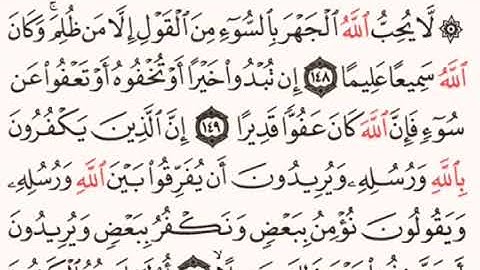 ۞ لَّا يُحِبُّ ٱللَّهُ ٱلْجَهْرَ بِٱلسُّوٓءِ مِنَ ٱلْقَوْلِ إِلَّا مَن ظُلِمَ ۚ وَكَانَ
ٱللَّهُ سَمِيعًا عَلِيمًا ١٤٨ إِن تُبْدُوا۟ خَيْرًا أَوْ تُخْفُوهُ أَوْ تَعْفُوا۟ عَن
سُوٓءٍ فَإِنَّ ٱللَّهَ كَانَ عَفُوًّا قَدِيرًا ١٤٩ إِنَّ ٱلَّذِينَ يَكْفُرُونَ
بِٱللَّهِ وَرُسُلِهِۦ وَيُرِيدُونَ أَن يُفَرِّقُوا۟ بَيْنَ ٱللَّهِ وَرُسُلِهِۦ
وَيَقُولُونَ نُؤْمِنُ بِبَعْضٍ وَنَكْفُرُ بِبَعْضٍ وَيُرِيدُونَ